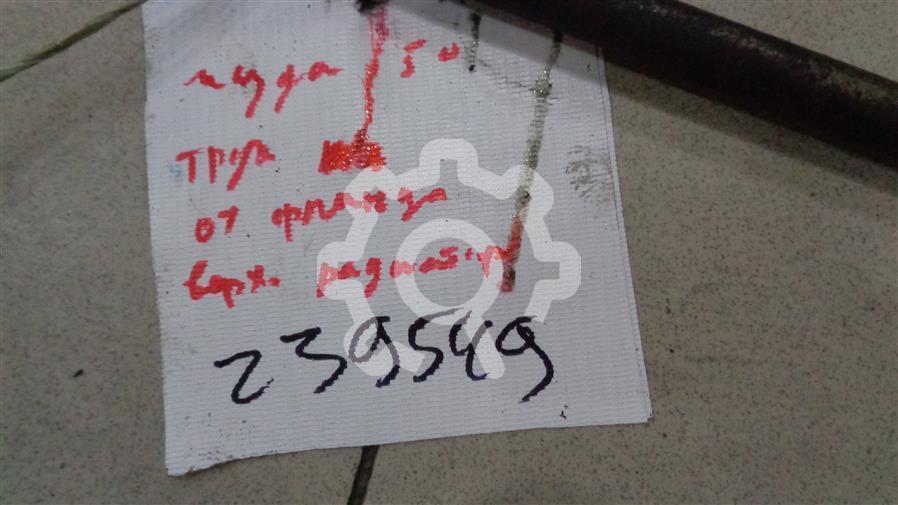 исудзу 50
труб
от фланца
верх. радиатор
239549